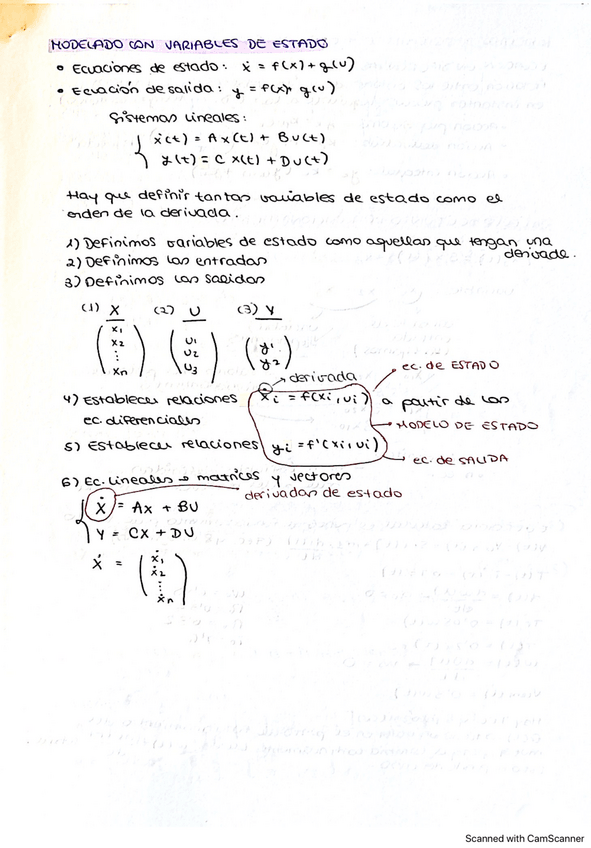 MODELADO CON VARIABLES DE ESTADO
• Ecuaciones de estado: ẋ = f(x) + g(u)
• Ecuación de salida: y = f(x), g(u)
Sistemas Lineales:
{ ẋ(t) = A x(t) + B u(t)
y(t) = C x(t) + D u(t)
Hay que definir tantas variables de estado como el
orden de la derivada.
1) Definimos variables de estado como aquellas que tengan una
derivada.
2) Definimos las entradas
3) Definimos las salidas
(1) X (2) U (3) Y
(x1 x2 ⋮ xn) (u1 u2 u3) (y1 y2)
→ derivada
ec. de ESTADO
4) Establecer relaciones ẋi = f(xi, ui) a partir de las
ec. diferenciales
→ MODELO DE ESTADO
5) Establecer relaciones yi = f'(xi, ui)
→ ec. de SALIDA
6) Ec. lineales → matrices y vectores
derivadas de estado
{ Ẋ = Ax + BU
Y = CX + DU
Ẋ = (ẋ1 ẋ2 ⋮ ẋn)
Scanned with CamScanner